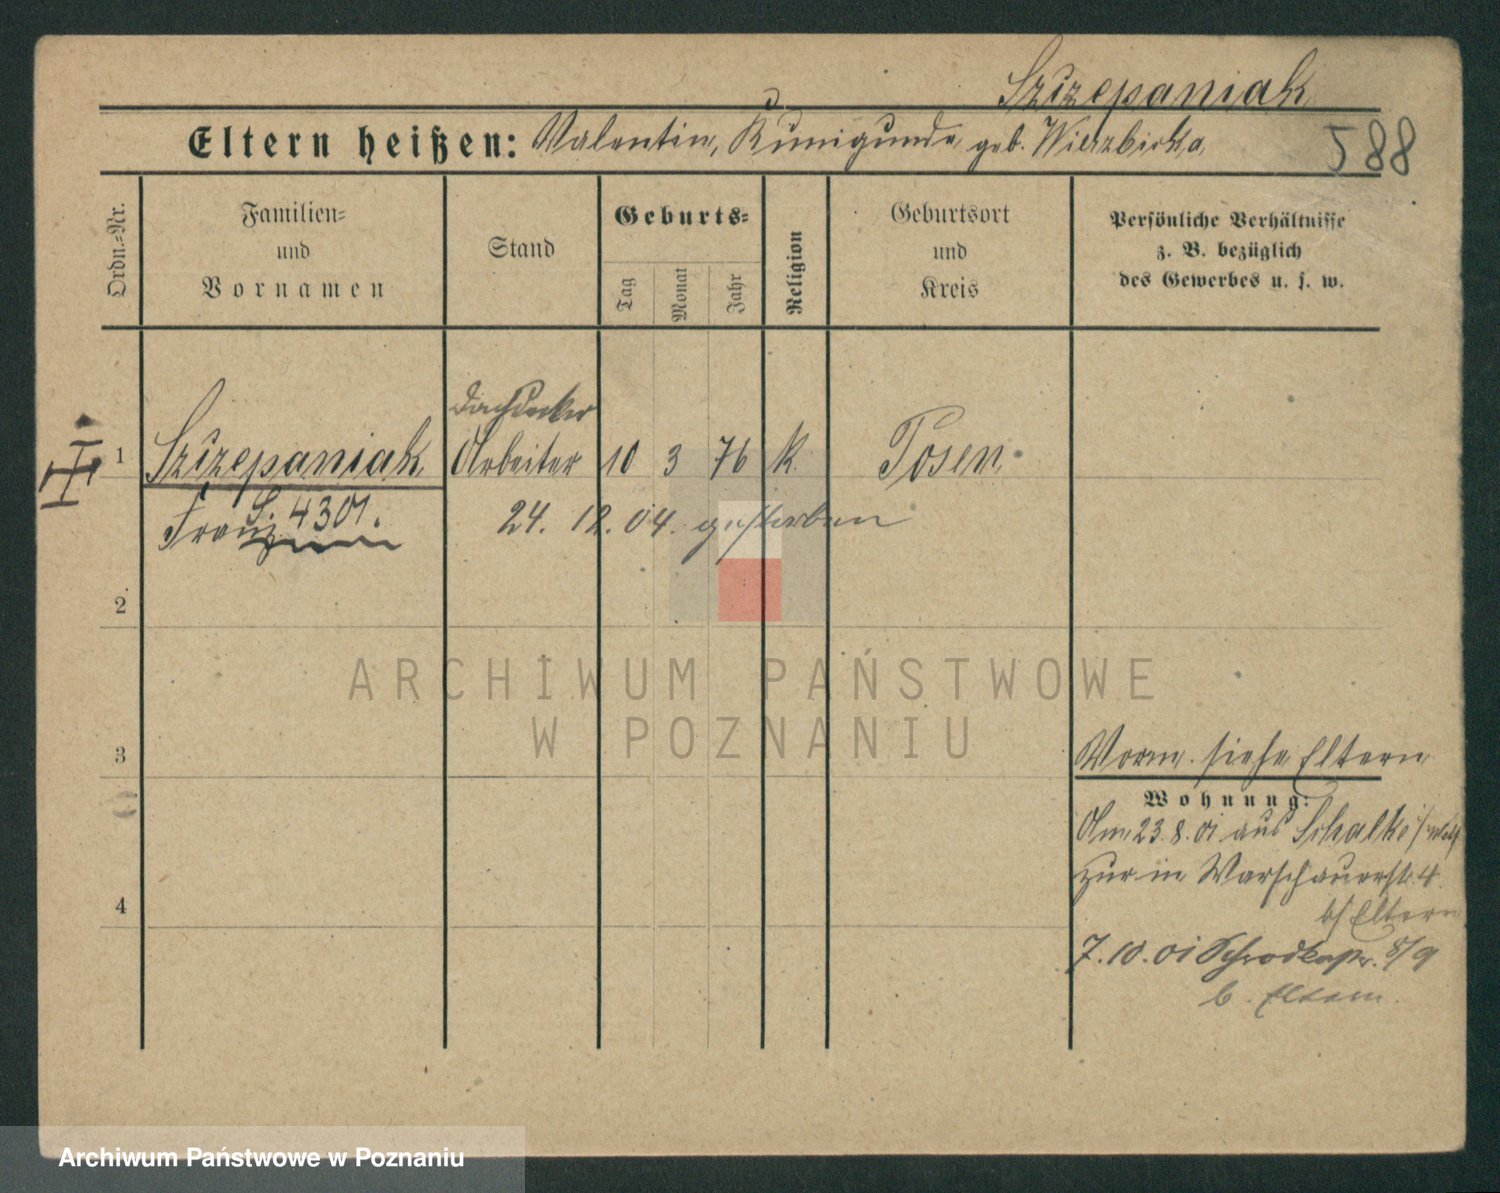 Szczepaniak
Eltern heißen: Valentin, Kunigunde geb. Wierzbicka
588
Ordn.=Nr.
Familien=
und
Vornamen
Stand
Geburts=
Tag
Monat
Jahr
Religion
Geburtsort
und
Kreis
Persönliche Verhältnisse
z. B. bezüglich
des Gewerbes u. s. w.
Dachdecker
1 Szczepaniak Arbeiter 10 3 76 K. Posen
S. 4301.
Franz 24. 12. 04. gestorben
2
ARCHIWUM PAŃSTWOWE
W POZNANIU
3
Vorm. siehe Eltern
Wohnung:
Am 23.8.01 aus Schalke
zur in Warschauerstr. 4
b/ Eltern
4
7.10.01 Schrodkastr. 8/9
b. Eltern.
Archiwum Państwowe w Poznaniu